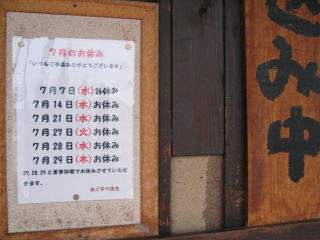 7月のお休み
「いつもご来店ありがとうございます」
7月7日(水)お休み
7月14日(水)お休み
7月21日(水)お休み
7月27日(火)お休み
7月28日(水)お休み
7月29日(木)お休み
27.28.29と夏季休暇でお休みさせていただ
きます。
あごすけ店主